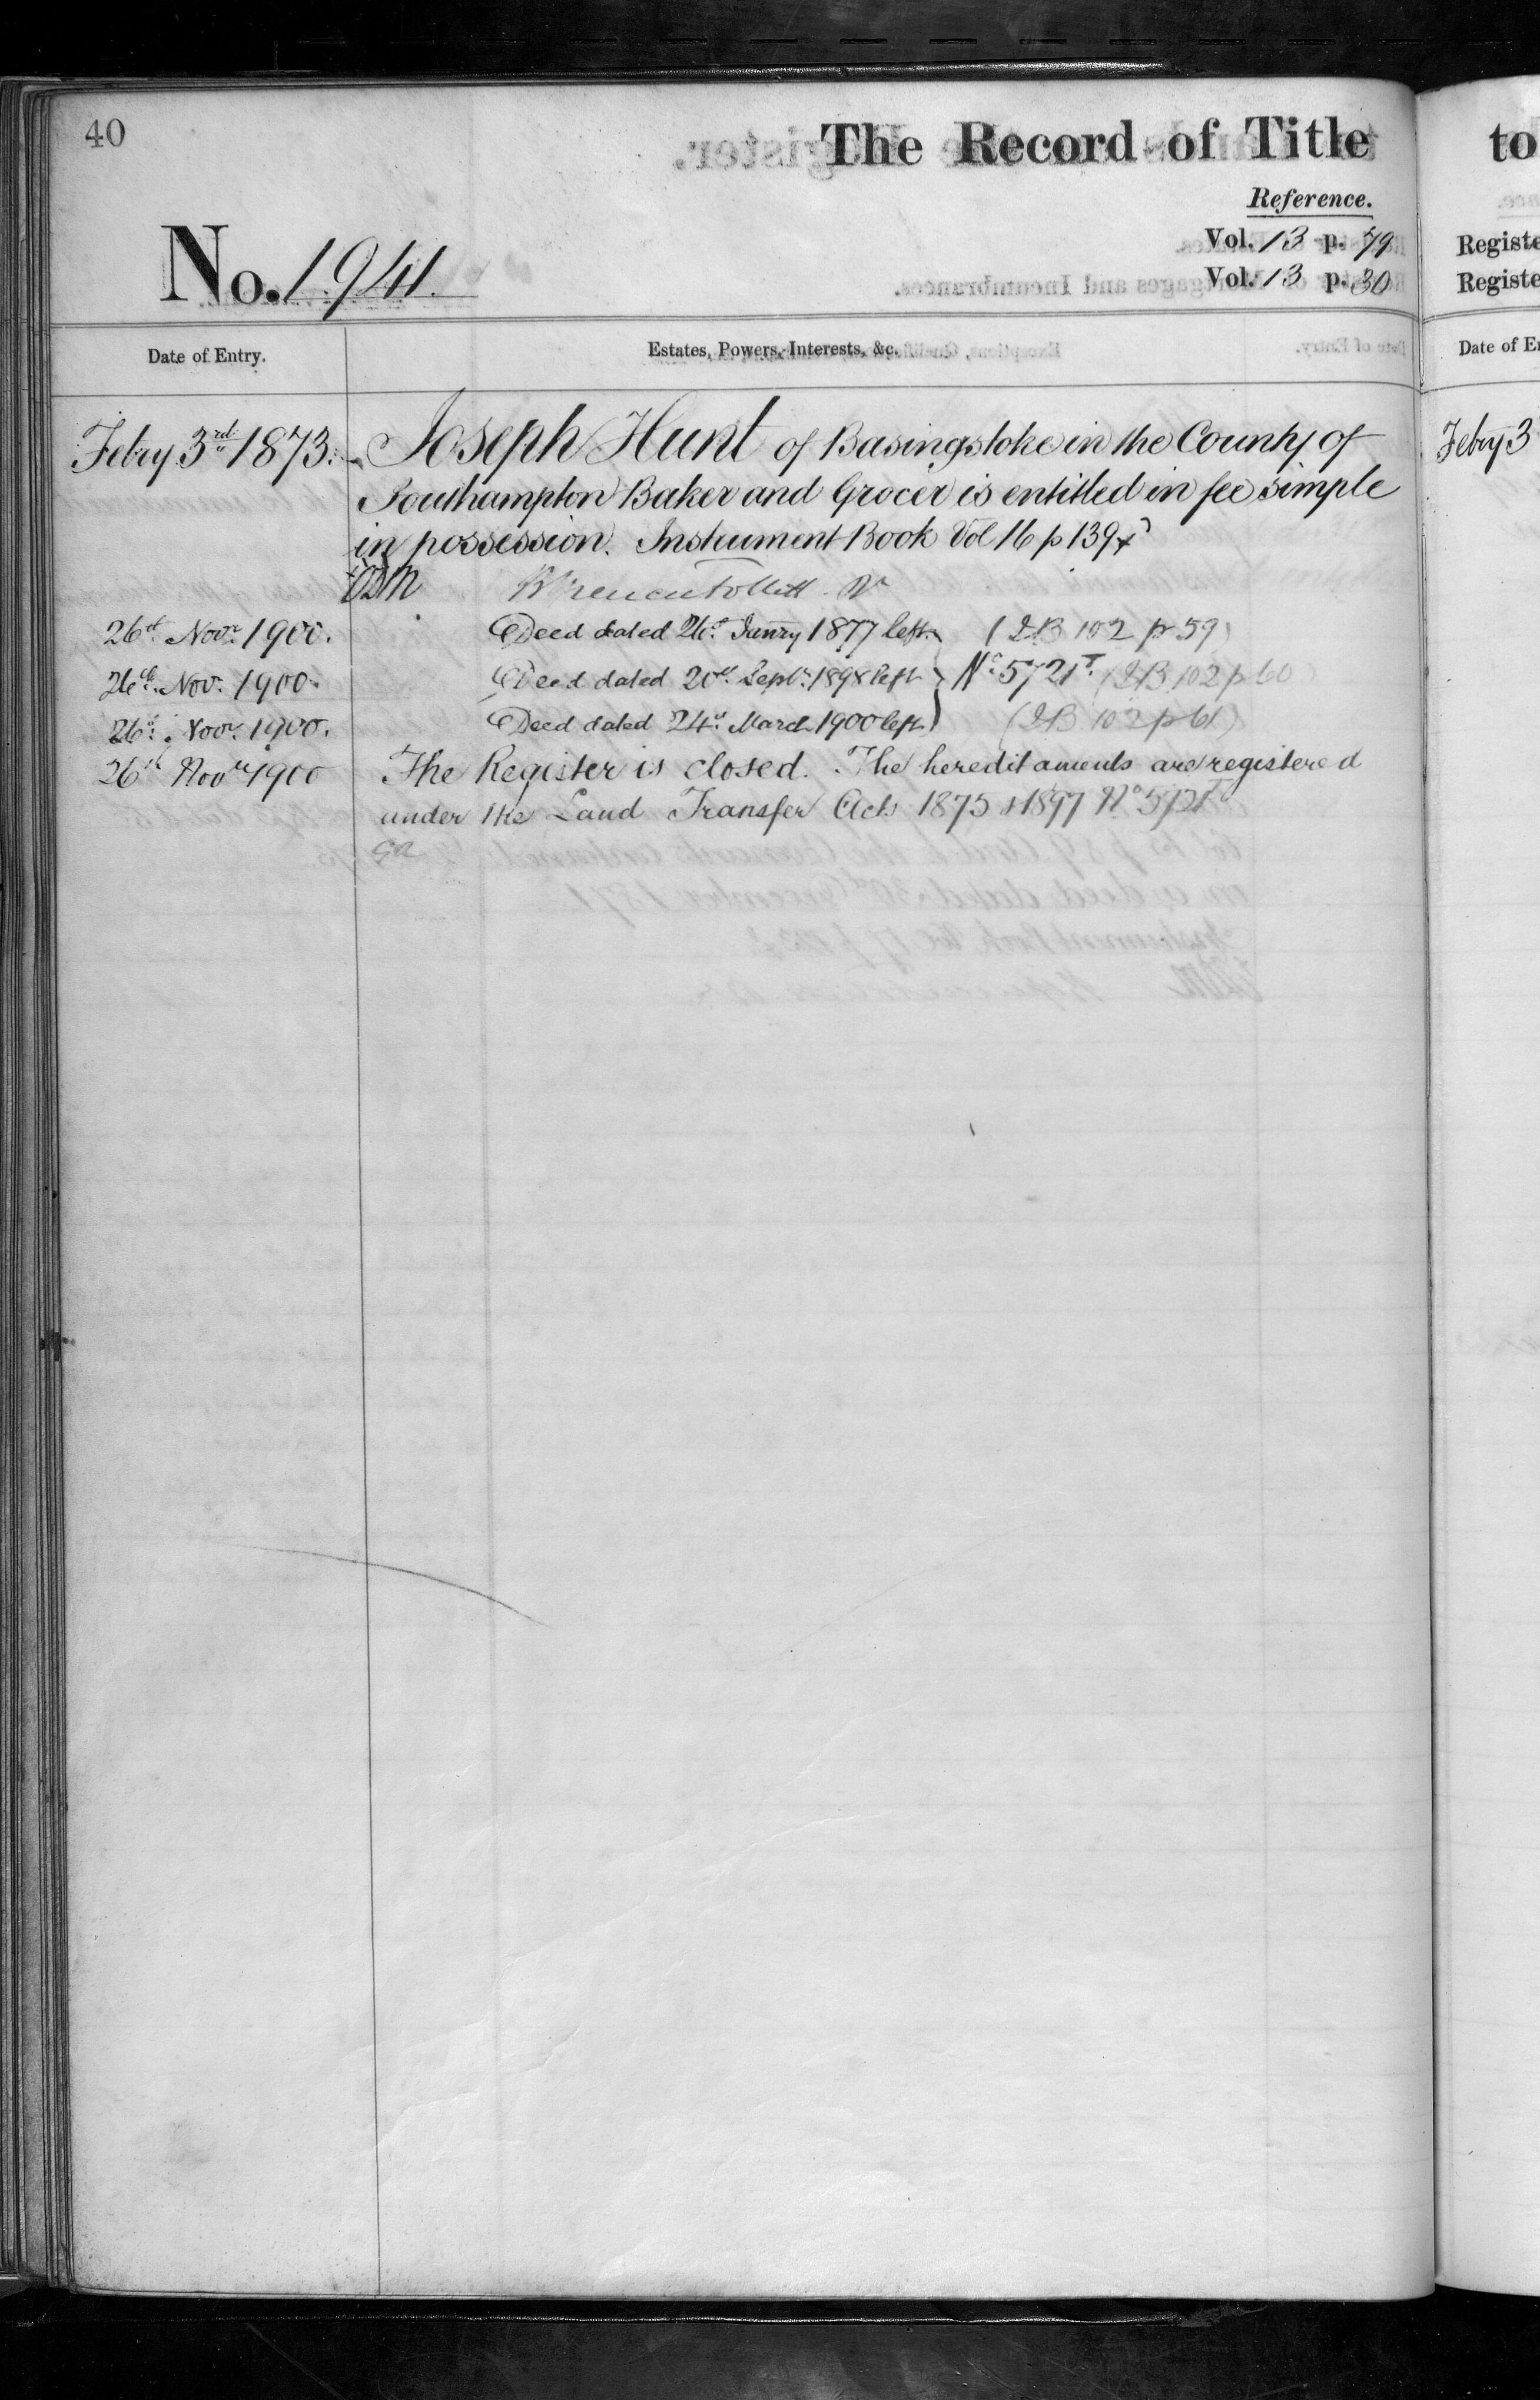 40
The Record of Title
Reference.
Vol. 13 p. 79
Vol. 13 p. 30
No. 1941.
Date of Entry. Estates, Powers, Interests, &c.
Febry 3rd 1873. Joseph Hunt of Basingstoke in the County of
Southampton Baker and Grocer is entitled in fee simple
in possession. Instrument Book Vol 16 p 139
Brent Follett R
26th Novr 1900. Deed dated 26th Janry 1877 left (IB 102 p 59)
26th Nov. 1900. Deed dated 20th Septr 1898 left No. 5721T (IB 102 p 60)
26th Novr 1900. Deed dated 24th March 1900 left (IB 102 p 61)
26th Novr 1900 The Register is closed. The hereditaments are registered
under the Land Transfer Acts 1875 & 1897 No 5721T
to
Registe
Registe
Date of E
Febry 3